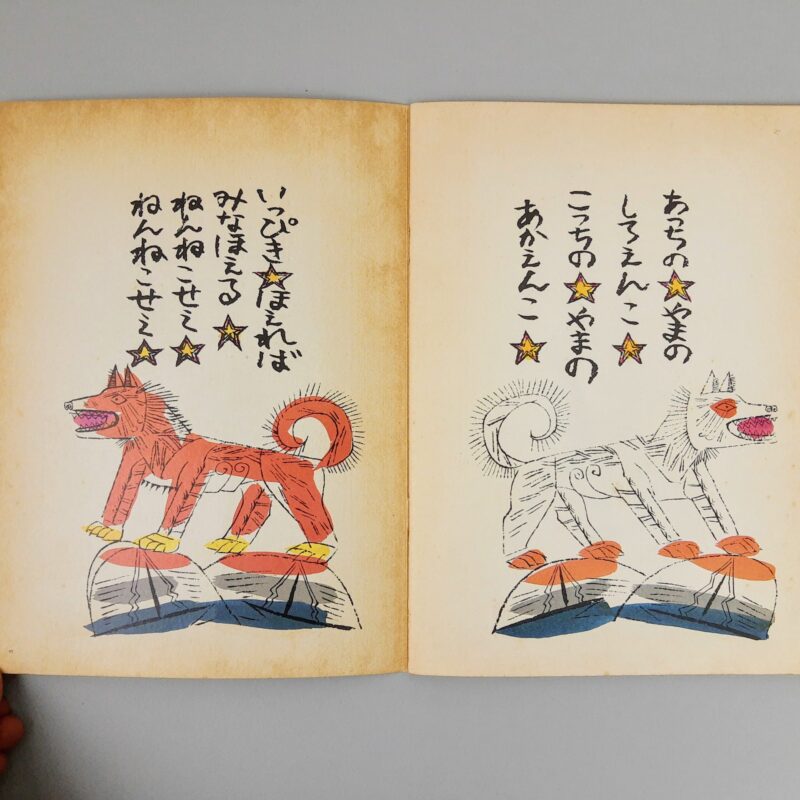 あっちの★やまの
しろえんこ★
こっちの★やまの
あかえんこ★
いっぴき★ほえれば
みなほえる★
ねんねこせえ★
ねんねこせえ★